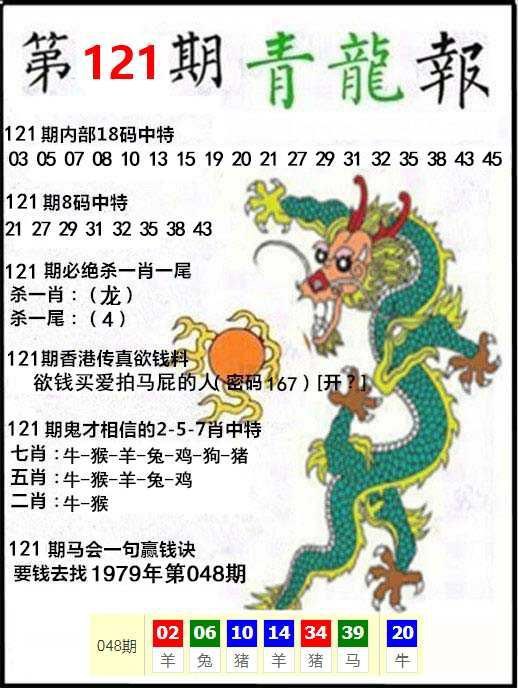 第121期青龍報
121期内部18码中特
03 05 07 08 10 13 15 19 20 21 27 29 31 32 35 38 43 45
121期8码中特
21 27 29 31 32 35 38 43
121期必绝杀一肖一尾
杀一肖：（龙）
杀一尾：（4）
121期香港传真欲钱料
欲钱买爱拍马屁的人(密码167)[开?]
121期鬼才相信的2-5-7肖中特
七肖：牛-猴-羊-兔-鸡-狗-猪
五肖：牛-猴-羊-兔-鸡
二肖：牛-猴
121期马会一句赢钱诀
要钱去找1979年第048期
048期 02 06 10 14 34 39 20
羊 兔 猪 羊 猪 马 牛